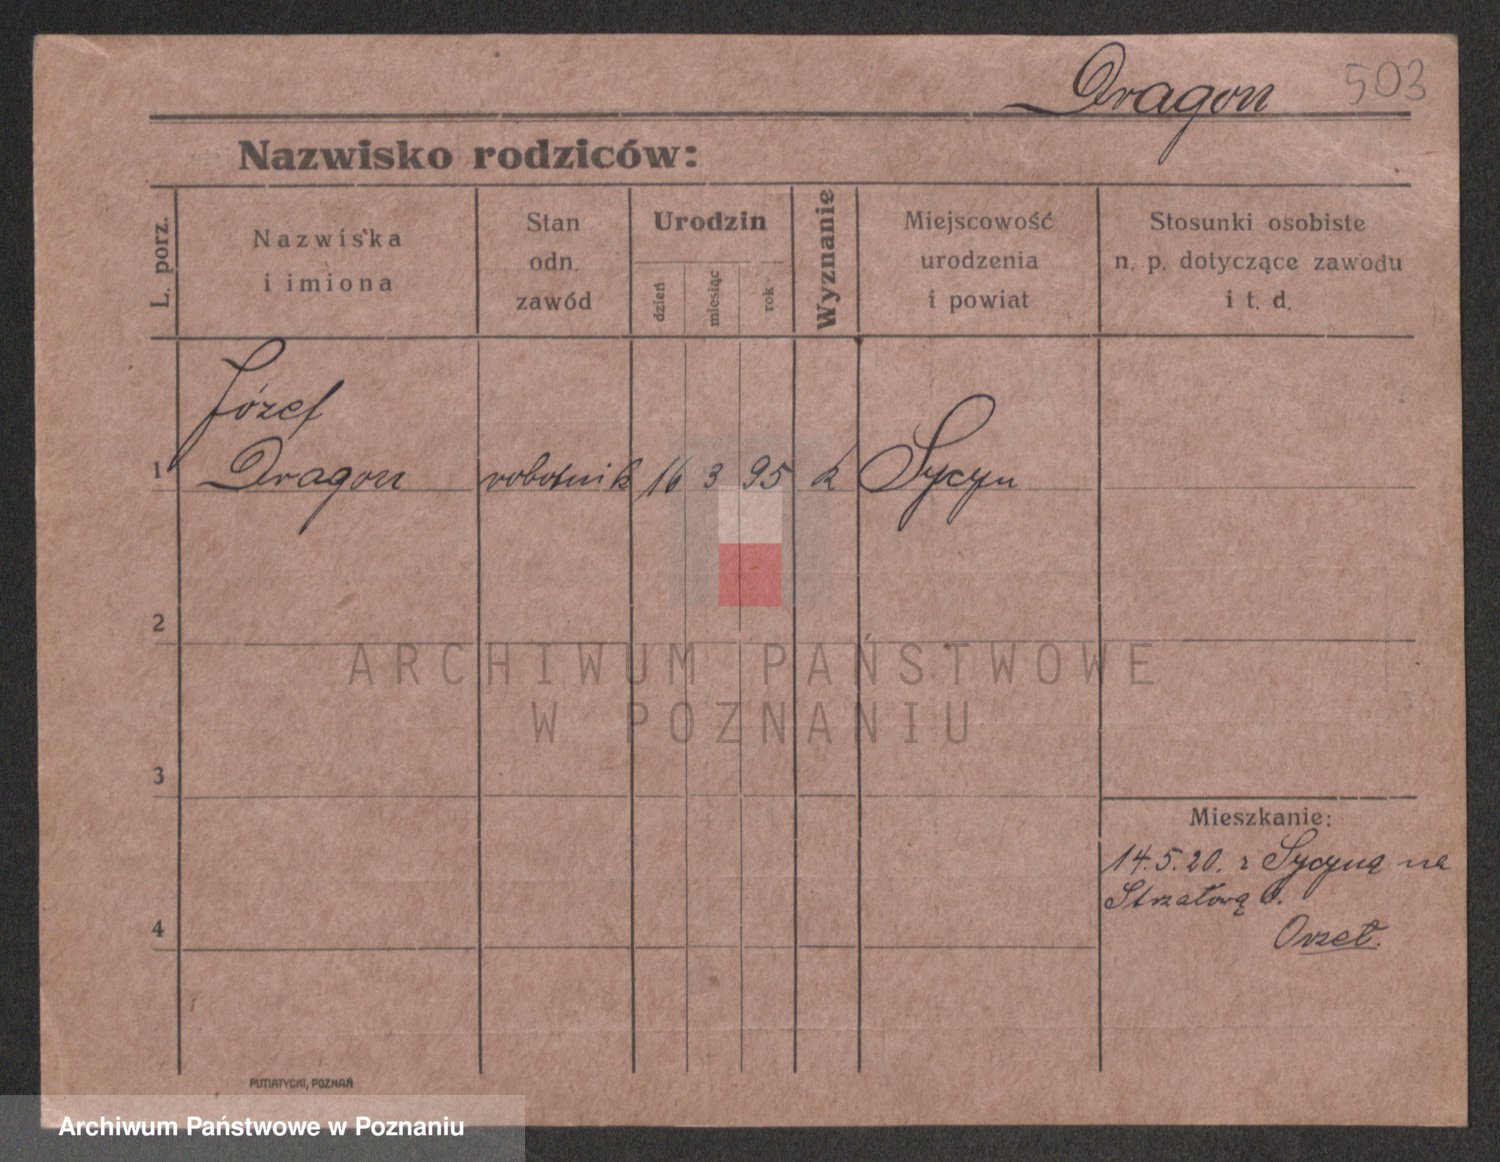 Dragon 503
Nazwisko rodziców:
L. porz.
Nazwiska
i imiona
Stan
odn.
zawód
Urodzin
dzień
miesiąc
rok
Wyznanie
Miejscowość
urodzenia
i powiat
Stosunki osobiste
n. p. dotyczące zawodu
i t. d.
Józef
1 Dragon robotnik 16 3 95 k Sycyn
2
ARCHIWUM PAŃSTWOWE
W POZNANIU
3
Mieszkanie:
14.5.20. z Sycyna na
Strzałową 8.
4
Orzeł.
PUTIATYCKI, POZNAŃ
Archiwum Państwowe w Poznaniu